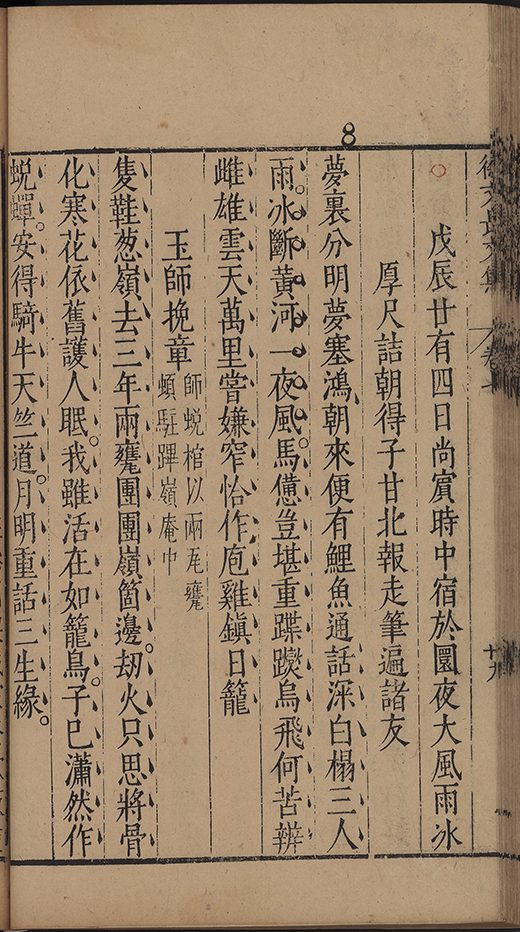 8
徐文長文集 卷七 廿九
戊辰廿有四日尚賓時中宿於圜夜大風雨冰
厚尺詰朝得子甘北報走筆遍諸友
夢裏分明夢塞鴻朝來便有鯉魚通話深白榻三人
雨冰斷黃河一夜風馬憊豈堪重蹀躞烏飛何苦辨
雌雄雲天萬里嘗嫌窄恰作庖雞鎮日籠
玉師挽章
師蛻棺以兩瓦甕
頓駐蹕嶺庵中
隻鞋葱嶺去三年兩甕團團嶺箇邊。刼火只思將骨
化寒花依舊護人眠。我雖活在如籠鳥。子已瀟然作
蛻蟬。安得騎牛天竺道。月明重話三生緣。